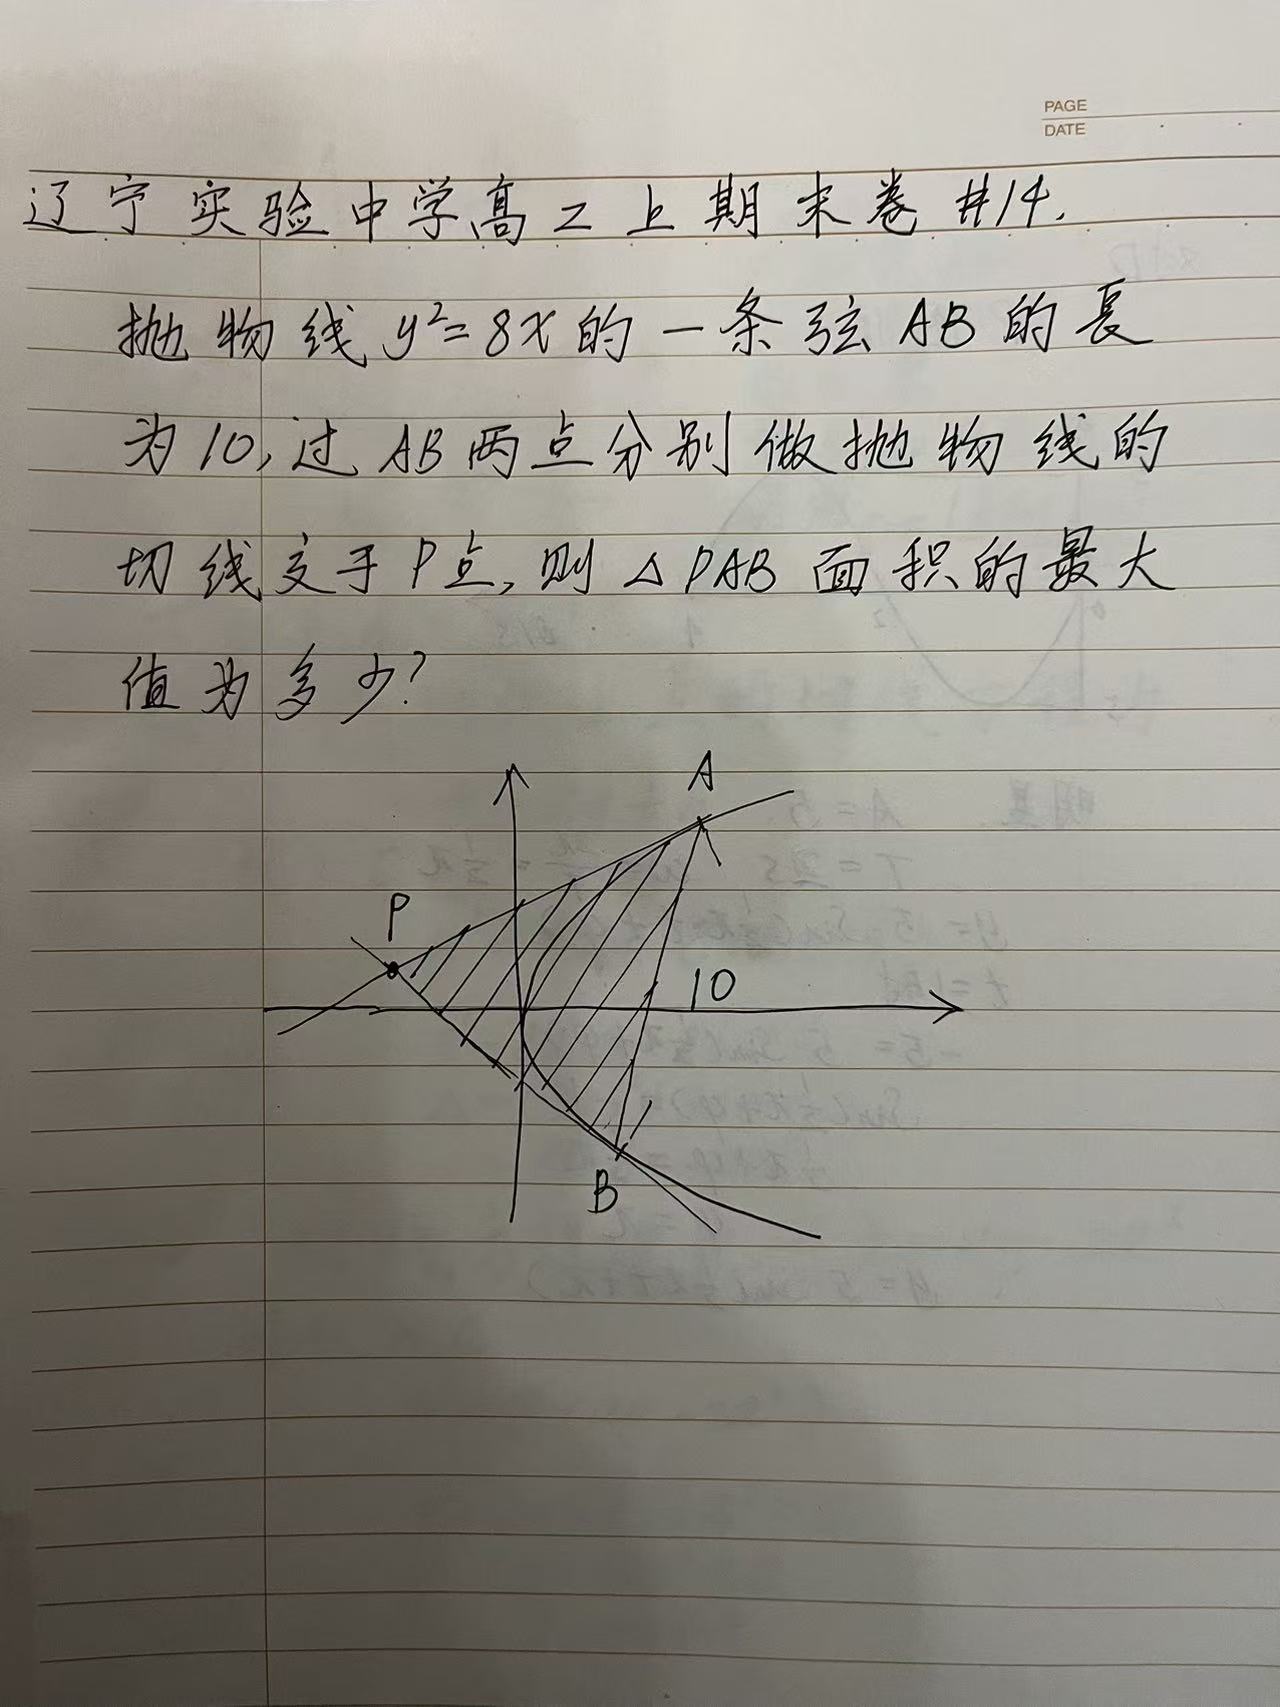 PAGE
DATE
辽宁实验中学高二上期末卷#14.
抛物线y²=8x的一条弦AB的長
为10,过AB两点分别做抛物线的
切线交于P点,则△PAB面积的最大
值为多少?
A
P
10
B